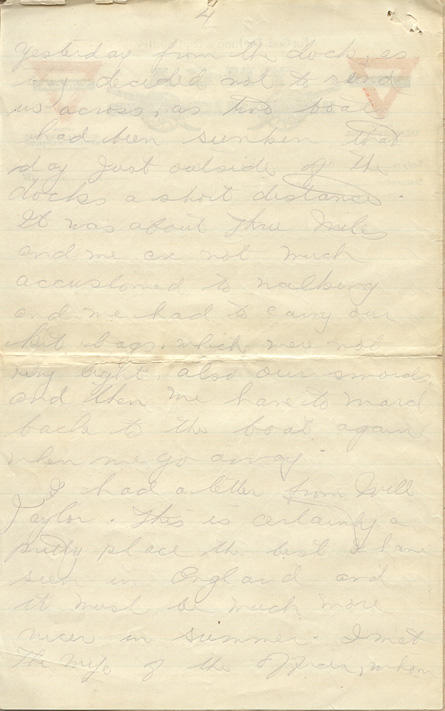 4
Yesterday from the dock, as
they decided not to send
us across, as two boats
had been sunken that
day just outside of the
docks a short distance.
It was about three miles
and we are not much
accustomed to walking
and we had to carry our
kit bags, which were not
very light, also our swords
and then we have to march
back to the boat again
when we go away.
I had a letter from Will
Taylor. This is certainly a
pretty place the best I have
seen in England and
it must be much more
nicer in summer. I met
the wife of the Officer, when